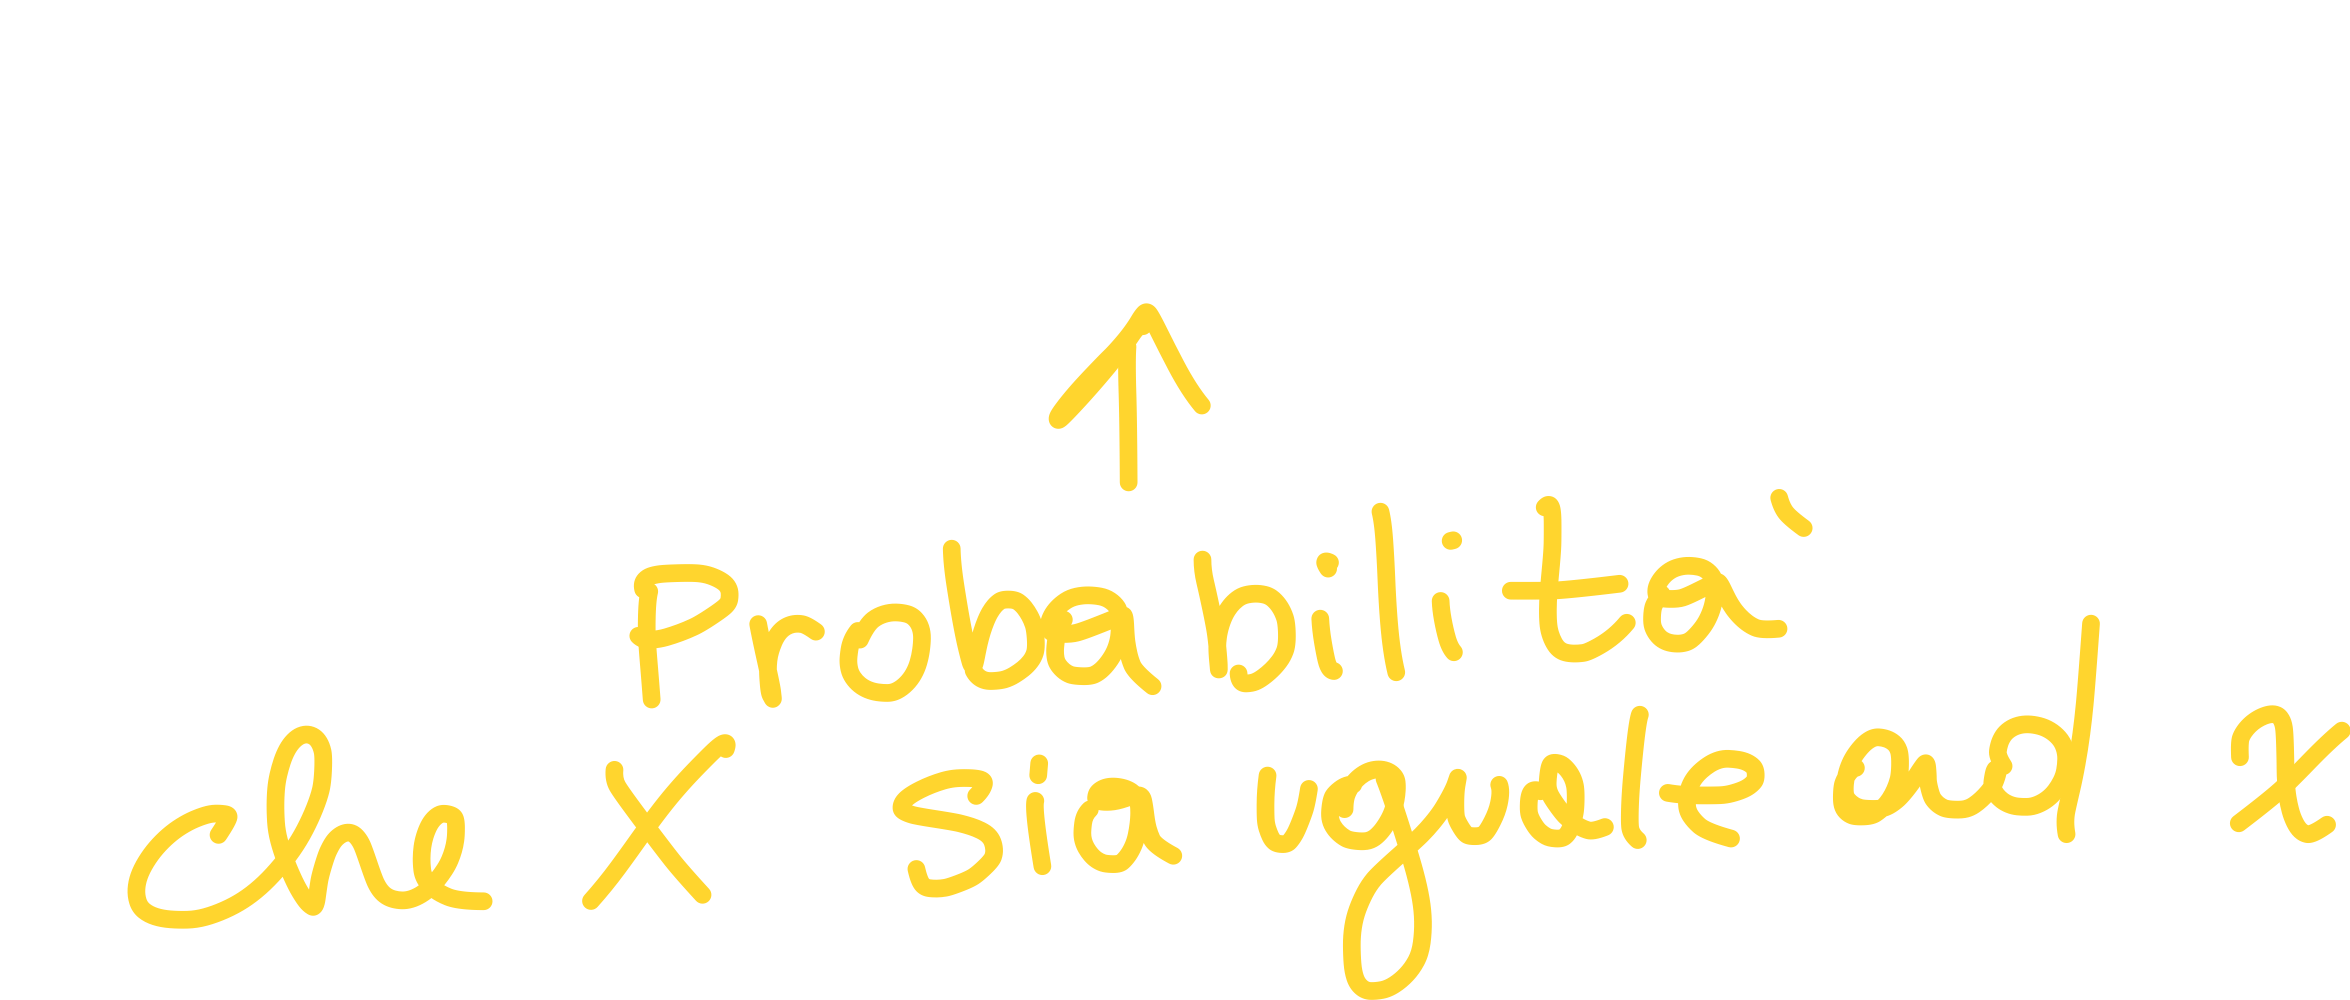 Probabilità
che X sia uguale ad x